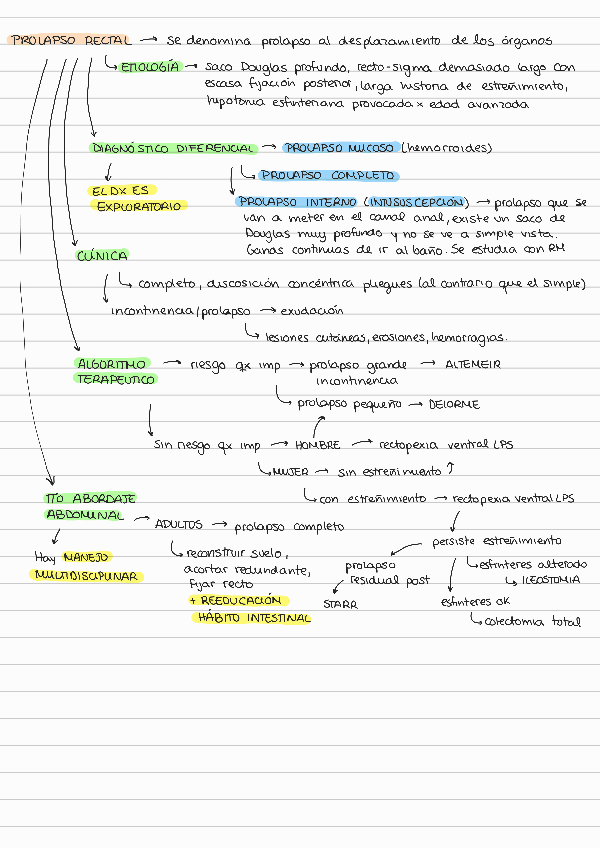 PROLAPSO RECTAL → se denomina prolapso al desplazamiento de los órganos
ETIOLOGÍA → saco Douglas profundo, recto-sigma demasiado largo con
escasa fijación posterior, larga historia de estreñimiento,
hipotonia esfinteriana provocada x edad avanzada
DIAGNÓSTICO DIFERENCIAL → PROLAPSO MUCOSO (hemorroides)
PROLAPSO COMPLETO
EL DX ES
EXPLORATORIO
PROLAPSO INTERNO (INTUSUSCEPCIÓN) → prolapso que se
van a meter en el canal anal, existe un saco de
Douglas muy profundo y no se ve a simple vista.
Ganas continuas de ir al baño. Se estudia con RM
CLÍNICA
completo, disposición concéntrica pliegues (al contrario que el simple)
incontinencia/prolapso → exudación
lesiones cutáneas, erosiones, hemorragias.
ALGORITMO
TERAPEUTICO
→ riesgo qx imp → prolapso grande → ALTEMEIR
incontinencia
prolapso pequeño → DELORME
Sin riesgo qx imp → HOMBRE → rectopexia ventral LPS
MUJER → sin estreñimiento ↑
con estreñimiento → rectopexia ventral LPS
TTO ABORDATE
ABDOMINAL
→ ADULTOS → prolapso completo
persiste estreñimiento
Hay MANEJO
MULTIDISCIPLINAR
reconstruir suelo,
acortar redundante,
fijar recto
+ REEDUCACIÓN
HÁBITO INTESTINAL
prolapso
residual post
STARR
esfinteres alterado
ILEOSTOMIA
esfinteres ok
colectomia total